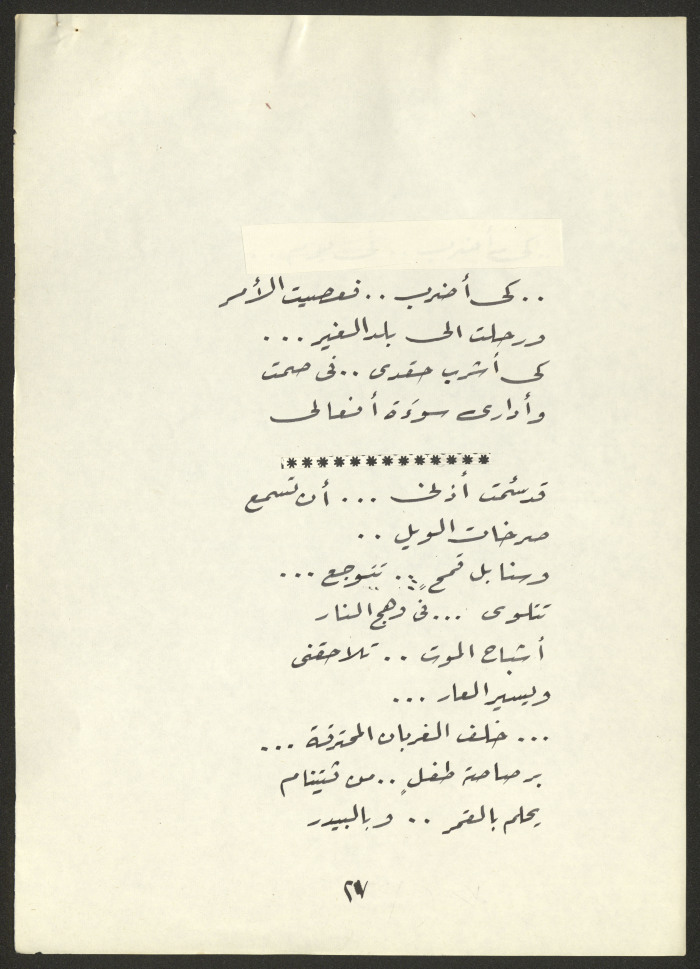 ..كى أضرب ..فعصيت الأمر
ورحلت الى بلد الغير ...
كى أشرب حقدى ..فى صمت
وأدارى سوءَة أفعالى
*************
قد سئمت أذنى ... أن تسمع
صرخات الويل ..
وسنابل قمحٍ .. تتوجع ...
تتلوى ...فى وهج النار
أشباح الموت .. تلاحقنى
ويسير العار ...
... خلف الغربان المحترقة ...
برصاصة طفلٍ ..من ڤيتنام
يحلم بالقمر .. وبالبيدر